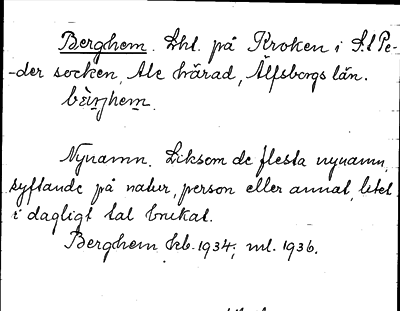 Berghem. Lhl. på Kroken i S:t Pe-
-der socken, Ale härad, Älfsborgs län.
Nynamn. Liksom de flesta nynamn,
syftande på natur, person eller annat, litet
i dagligt tal brukat.
Berghem kb. 1934; ml. 1936.